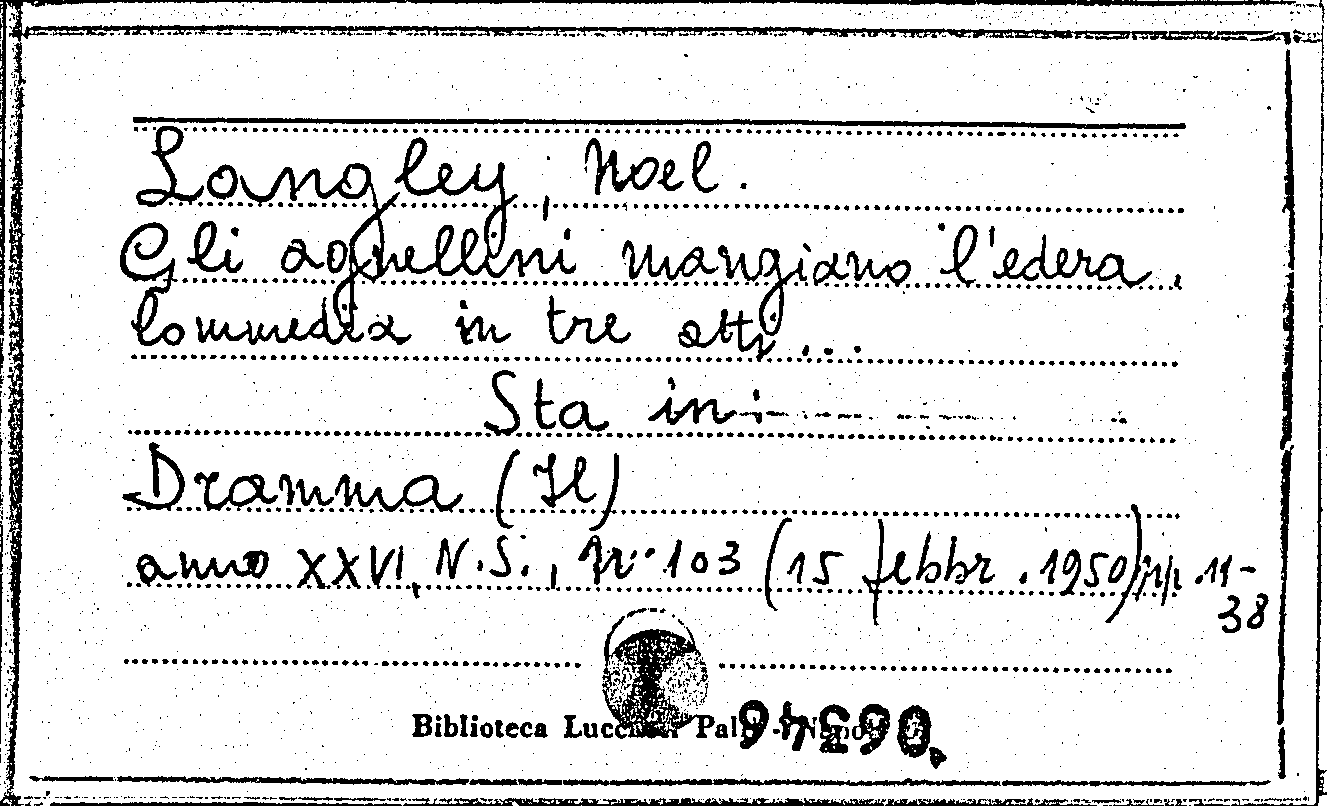 Langley, Noel.
Gli agnellini mangiano l'edera.
Commedia in tre atti...
Sta in:
Dramma (Il)
anno XXVI, N.S., n° 103 (15 febbr. 1950) pp. 11-
38
Biblioteca